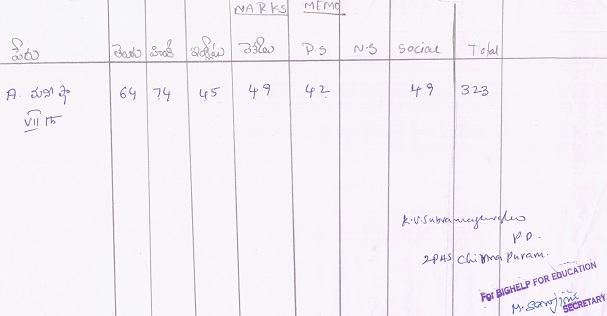 MARKS MEMO
పేరు తెలుగు హిందీ ఇంగ్లీషు లెక్కలు P.S N.S Social Total
A. మనీషా 64 74 45 49 42 49 323
VII th
K.V. Subramanyeswarlu
P.D.
ZPHS Chinnapuram.
For BIGHELP FOR EDUCATION
M. Sarojini SECRETARY